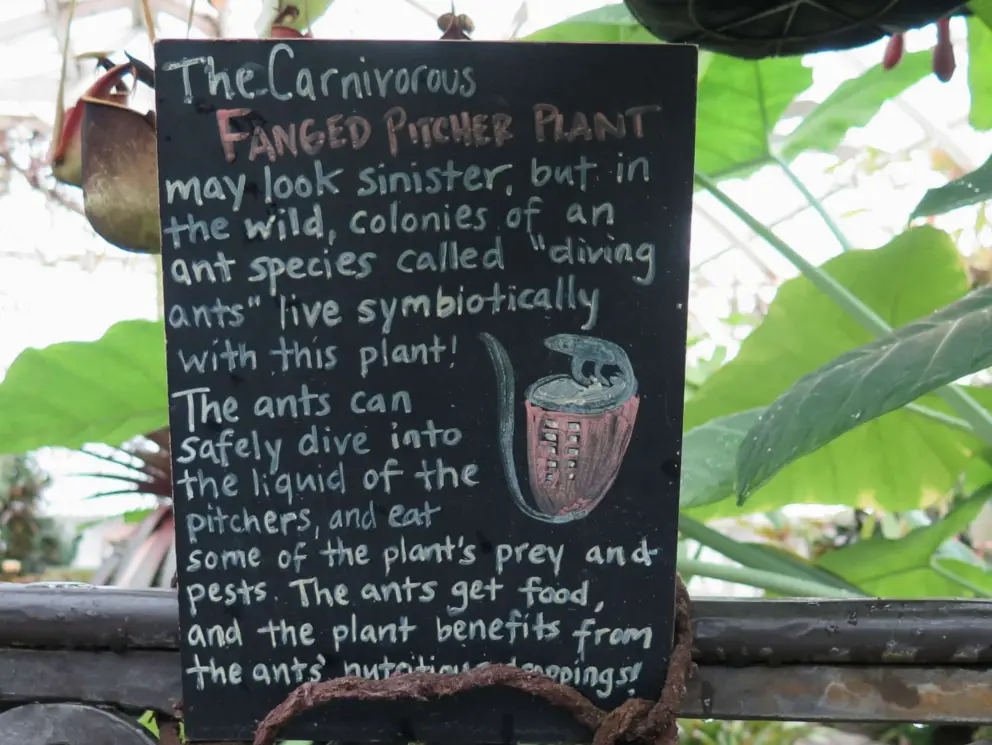 The Carnivorous
FANGED PITCHER PLANT
may look sinister, but in
the wild, colonies of an
ant species called "diving
ants" live symbiotically
with this plant!
The ants can
safely dive into
the liquid of the
pitchers, and eat
some of the plant's prey and
pests. The ants get food,
and the plant benefits from
the ants' nutritious droppings!